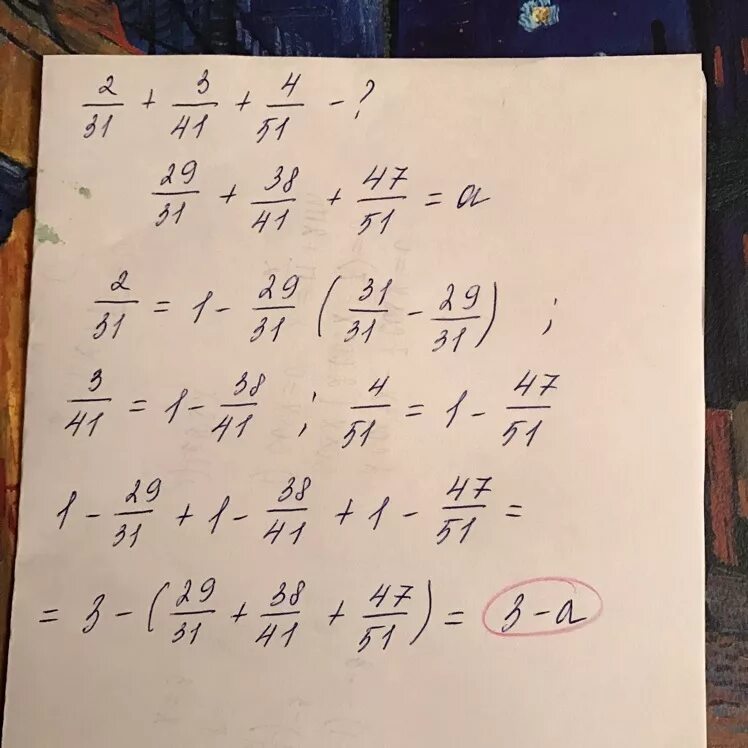 2/31 + 3/41 + 4/51 - ?
29/31 + 38/41 + 47/51 = a
2/31 = 1 - 29/31 (31/31 - 29/31) ;
3/41 = 1 - 38/41 ; 4/51 = 1 - 47/51
1 - 29/31 + 1 - 38/41 + 1 - 47/51 =
= 3 - (29/31 + 38/41 + 47/51) = 3 - a